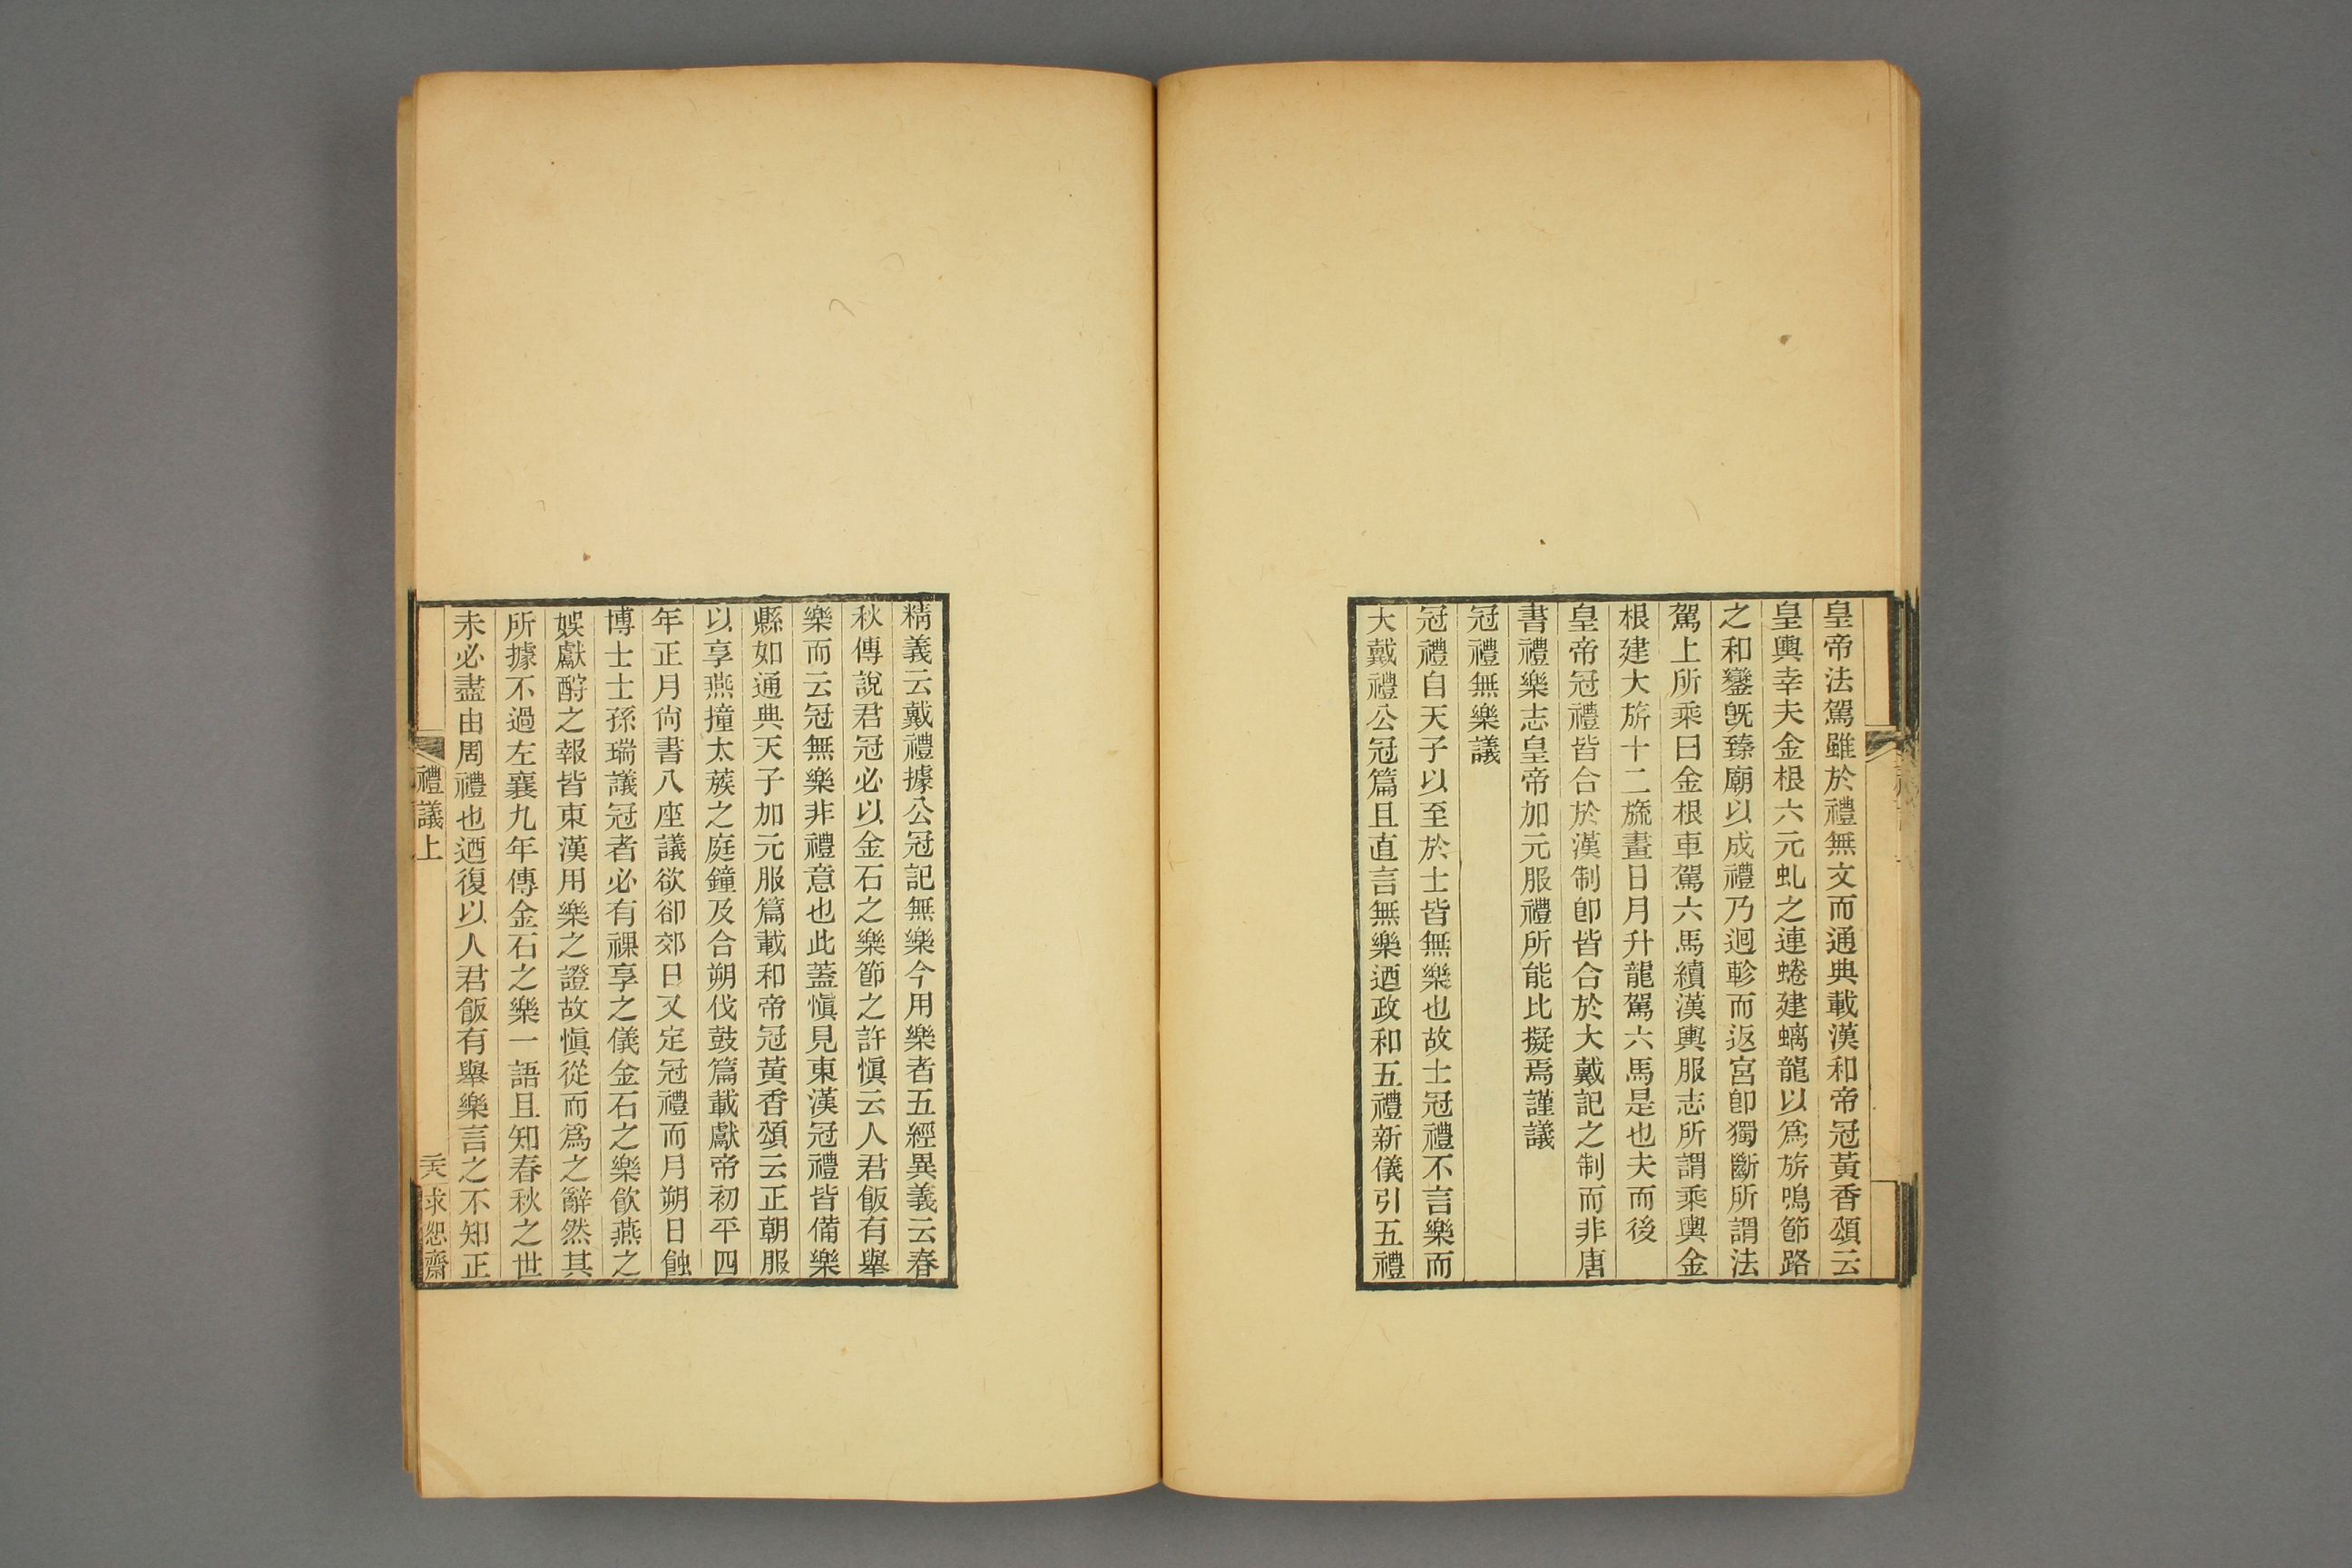 皇帝法駕雖於禮無文而通典載漢和帝冠黃香頌云
皇輿幸夫金根六元虬之連蜷建螭龍以爲旂鳴節路
之和鑾旣臻廟以成禮乃迴軫而返宮卽獨斷所謂法
駕上所乘曰金根車駕六馬續漢輿服志所謂乘輿金
根建大旂十二斿畫日月升龍駕六馬是也夫而後
皇帝冠禮皆合於漢制卽皆合於大戴記之制而非唐
書禮樂志皇帝加元服禮所能比擬焉謹議
冠禮無樂議
冠禮自天子以至於士皆無樂也故士冠禮不言樂而
大戴禮公冠篇且直言無樂迺政和五禮新儀引五禮
精義云戴禮據公冠記無樂今用樂者五經異義云春
秋傳說君冠必以金石之樂節之許愼云人君飯有舉
樂而云冠無樂非禮意也此蓋愼見東漢冠禮皆備樂
縣如通典天子加元服篇載和帝冠黃香頌云正朝服
以享燕撞太蔟之庭鐘及合朔伐鼓篇載獻帝初平四
年正月尙書八座議欲卻郊日又定冠禮而月朔日蝕
博士士孫瑞議冠者必有祼享之儀金石之樂飮燕之
娛獻酧之報皆東漢用樂之證故愼從而爲之辭然其
所據不過左襄九年傳金石之樂一語且知春秋之世
未必盡由周禮也迺復以人君飯有舉樂言之不知正
禮議上
求恕齋